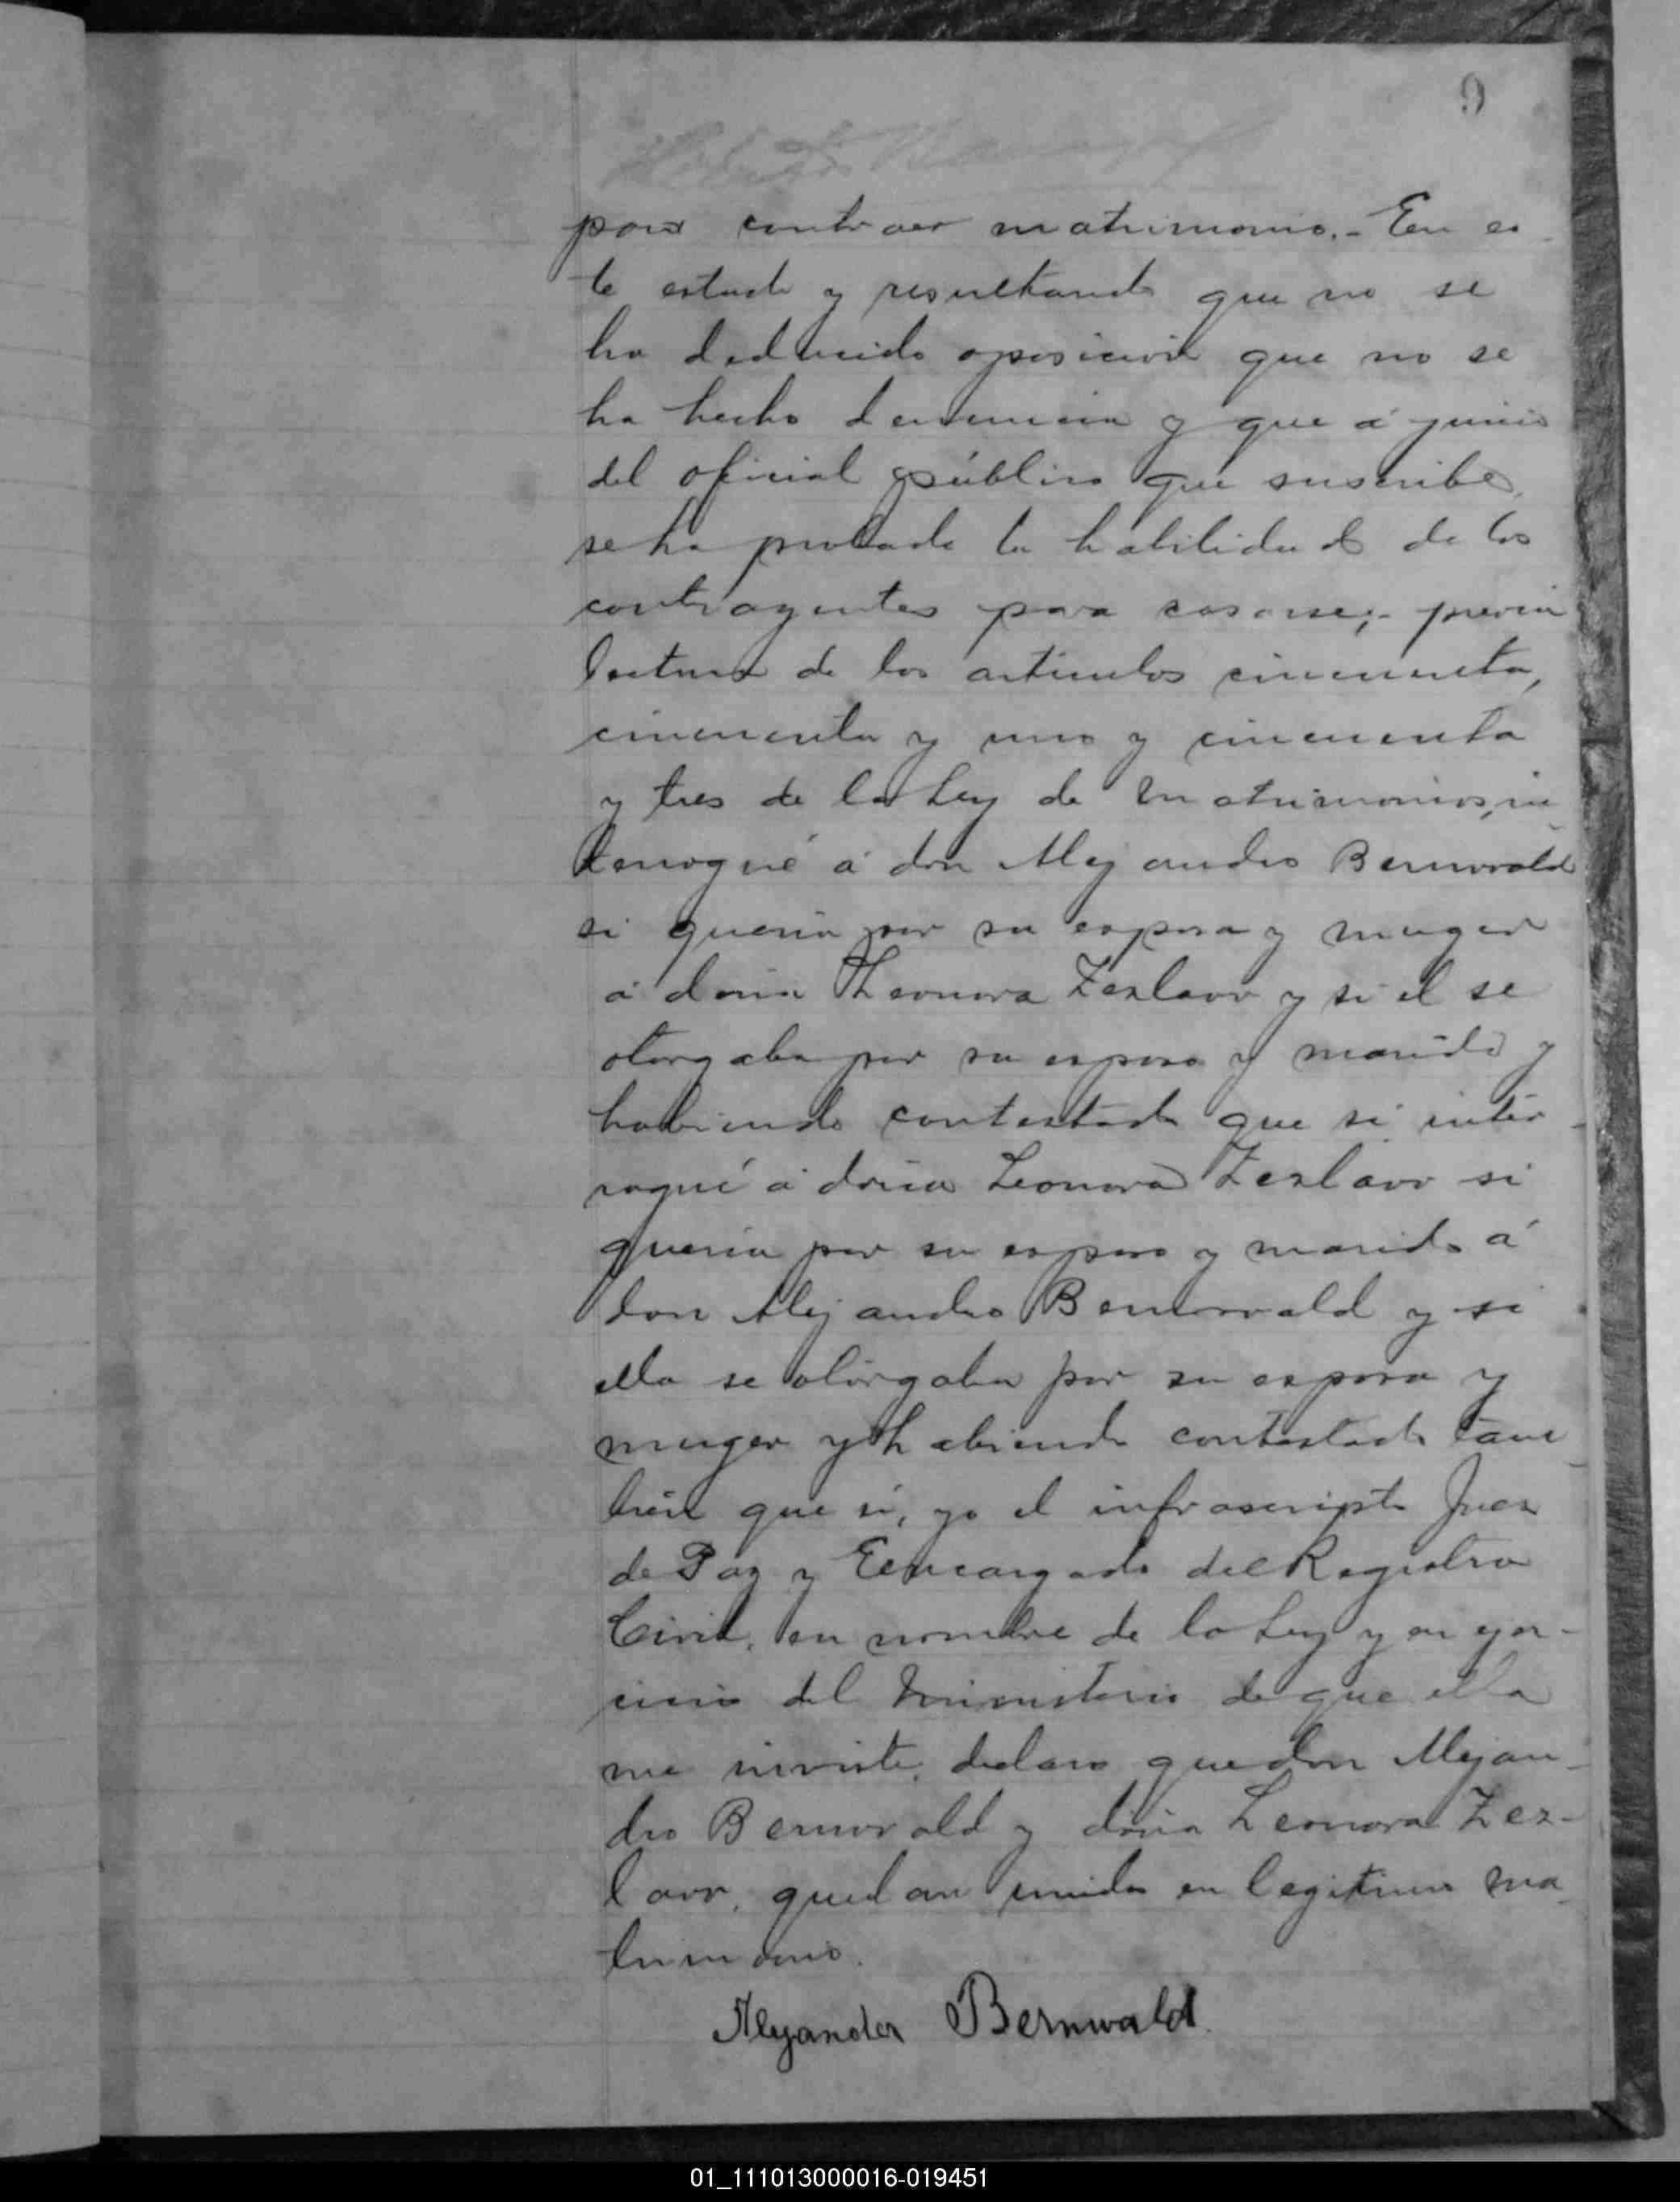 9
para contraer matrimonio.- En es
te estado y resultando que no se
ha deducido oposición que no se
ha hecho denuncia y que á juicio
del oficial público que suscribe,
se ha probado la habilidad de los
contrayentes para casarse;- previa
lectura de los artículos cincuenta,
cincuenta y uno y cincuenta
y tres de la Ley de Matrimonios, in
terrogué á don Alejandro Bernwald
si quería por su esposa y muger
á doña Leonora Zezlavv y si el se
otorgaba por su esposo y marido y
habiendo contestado que si inter-
rogué á doña Leonora Zezlavv si
quería por su esposo y marido á
don Alejandro Bernwald y si
ella se otorgaba por su esposa y
muger y habiendo contestado tam-
bién que si, yo el infrascripto Juez
de Paz y Encargado del Registro
Civil, en nombre de la Ley y en ejer-
cicio del Ministerio de que ella
me inviste, declaro que don Alejan-
dro Bernwald y doña Leonora Zez-
lavv, quedan unidos en legitimo ma
trimonio.
Alejander Bernwald.
01_111013000016-019451